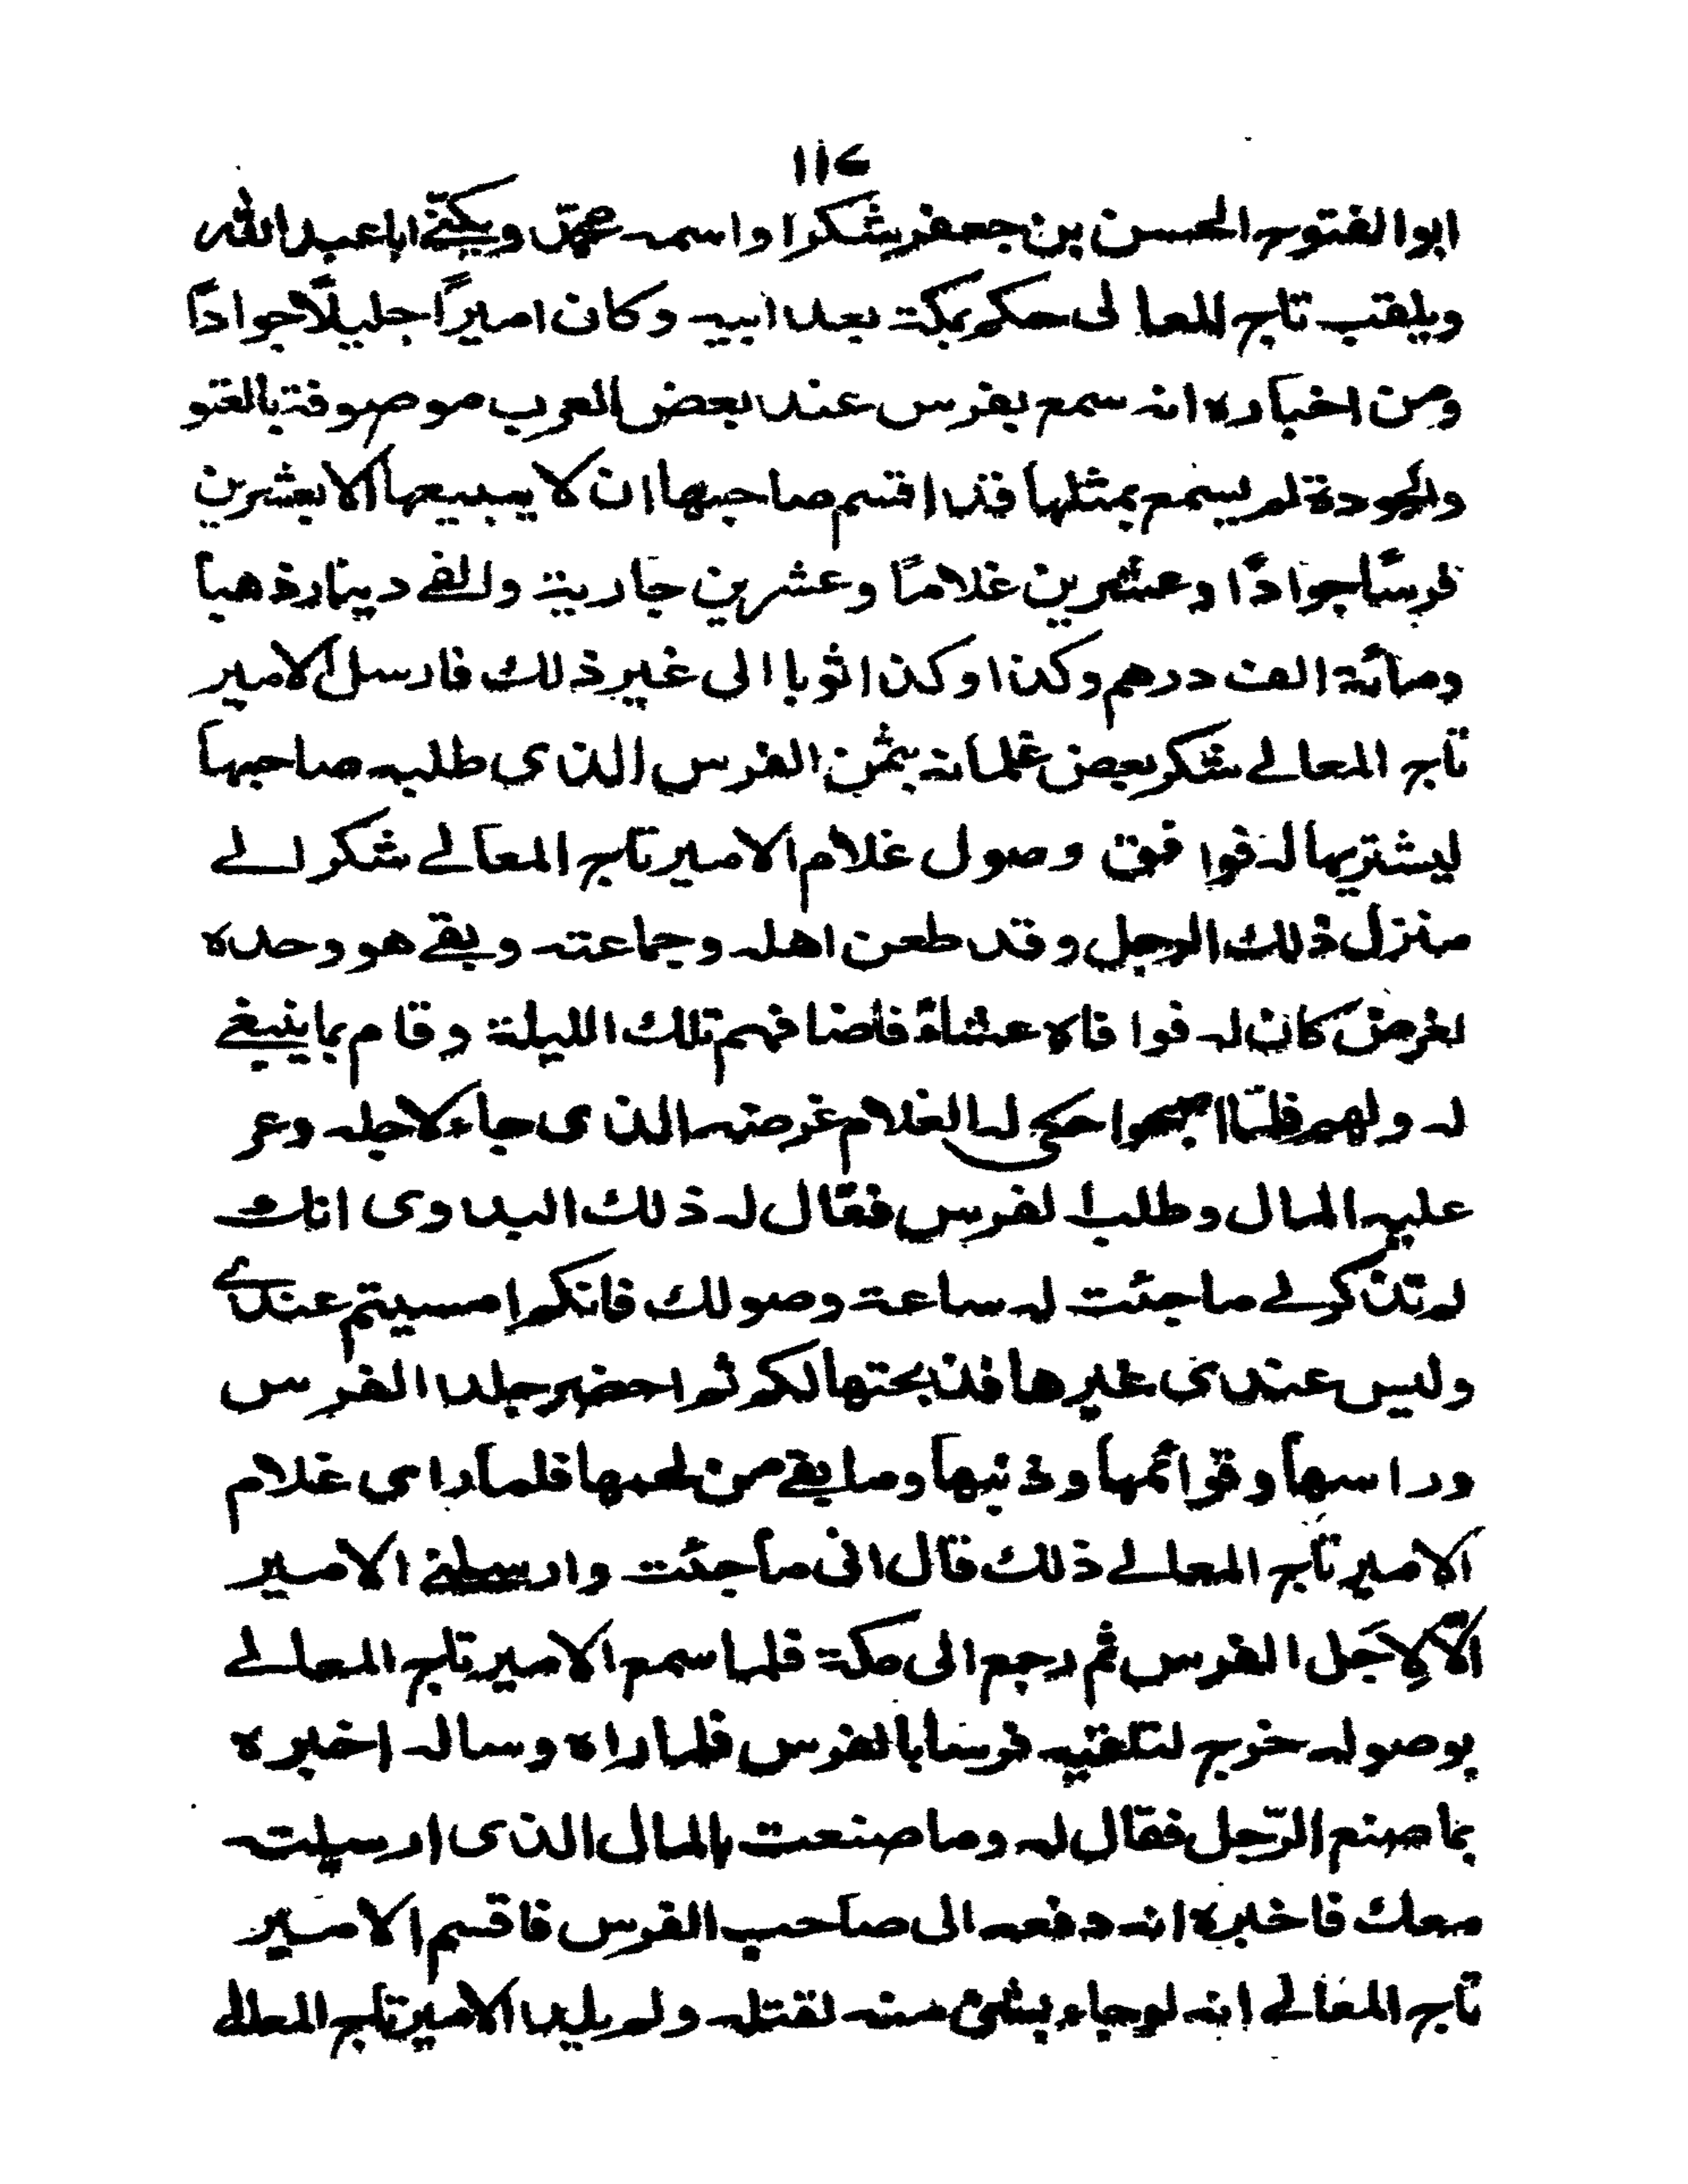 ١١٤
ابوالفتوح الحسن بن جعفر شكرا واسمه محمّد ويكنّے اباعبدالله
ويلقب تاج المعالى حكم بمكة بعد ابيه وكان اميرًا جليلًا جوادًا
ومن اخباره انه سمع بفرس عند بعض العرب موصوفة بالعتو
والجودة لم يسمع بمثلها قد اقسم صاحبها ان لا يبيعها الا بعشرين
فرسًا جوادًا وعشرين غلامًا وعشرين جارية والفے دينار ذهبا
ومائة الف درهم وكذا وكذا ثوبا الى غير ذلك فارسل الامير
تاج المعالے شكر بعض غلمانه بثمن الفرس الذى طلبه صاحبها
ليشتريها له فوافق وصول غلام الامير تاج المعالے شكر الے
منزل ذلك الرجل وقد ظعن اهله وجماعته وبقے هو وحده
لغرض كان له فوافاه عشاءً فاضافهم تلك الليلة وقام بما ينبغے
له ولهم فلمّا اصبحوا حكى له الغلام غرضه الذى جاء لاجله وعر
عليه المال وطلب الفرس فقال له ذلك البدوى انك
لم تذكر لے ما جئت له ساعة وصولك فانكم امسيتم عندے
وليس عندى غيرها فذبحتها لكم ثم احضر جلد الفرس
وراسها وقوائمها وذنبها وما بقے من لحمها فلما راى غلام
الامير تاج المعالے ذلك قال انى ما جئت وارسلنے الامير
الّا لاِجَل الفرس ثم رجع الى مكة فلما سمع الامير تاج المعالے
بوصوله خرج لتلقيه فرسا بالفرس فلما راه وساله اخبره
بما صنع الرّجل فقال له وما صنعت بالمال الذى ارسلته
معك فاخبره انه دفعه الى صاحب الفرس فاقسم الامير
تاج المعالے انه لو جاء بشئ منه لقتله ولم يلد الامير تاج المعالے